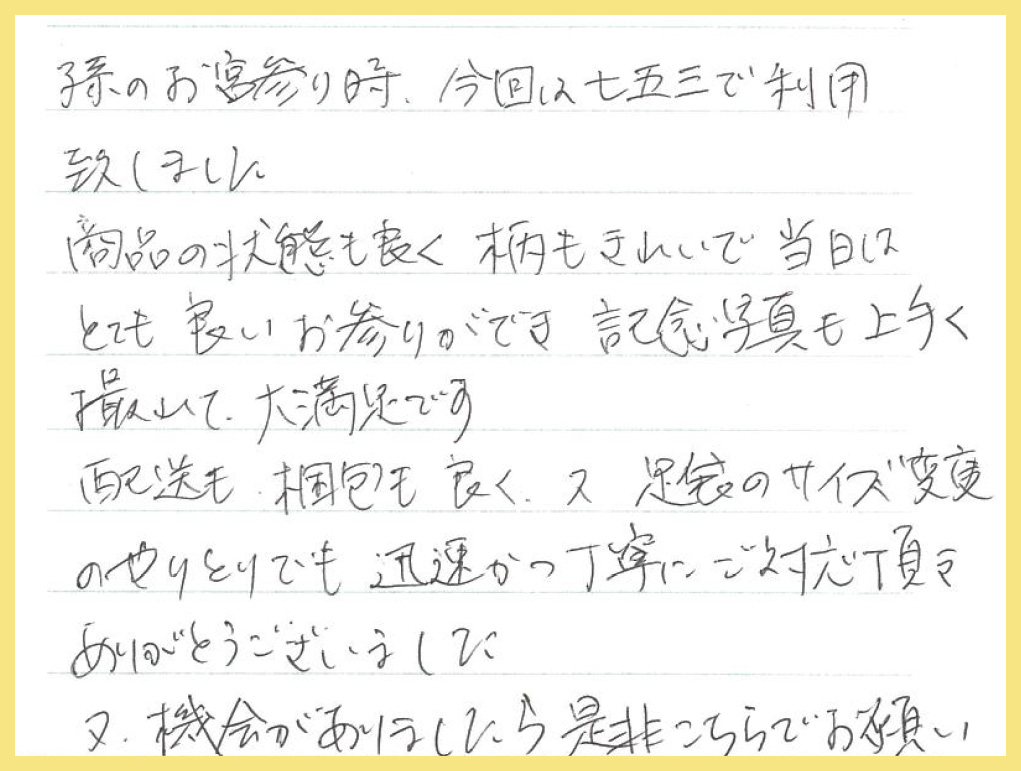 孫のお宮参り時、今回は七五三で利用
致しました
商品の状態も良く 柄もきれいで 当日は
とても 良い お参りができ 記念写真も上手く
撮れて、大満足です
配送も 梱包も 良く、又 足袋のサイズ変更
のやりとりでも 迅速かつ丁寧にご対応頂き
ありがとうございました
又、機会がありましたら是非こちらでお願い